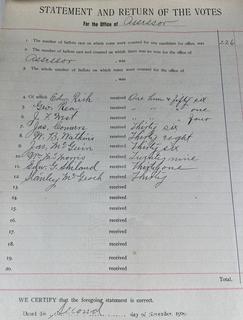 STATEMENT AND RETURN OF THE VOTES
For the Office of Assessor
1. The number of ballots cast on which votes were counted for any candidate for office, was 226
2. The number of ballots cast and counted on which there was no vote for the office of
Assessor , was
3. The whole number of ballots on which votes were counted for the office of
, was
4. Of which received One hun & fifty six
5. Geo. received " " " one
6. J. F. received " " four
7. Jas. Connors received Thirty six
8. W. B. Watkins received Thirty eight
9. Jas. McGuire received Thirty six
10. Wm. H. Morris received Twenty nine
11. Edw. G. received Thirty one
12. Stanley received Thirty
13. received
14. received
15. received
16. received
17. received
18. received
19. received
20. received
WE CERTIFY that the foregoing statement is correct.
Dated this Second day of November, 19